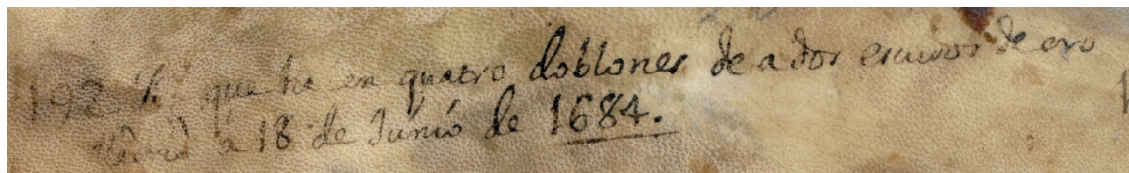 192 Rs que ha en quatro doblones de a dos escudos de oro
Madrid a 18 de Junio de 1684.